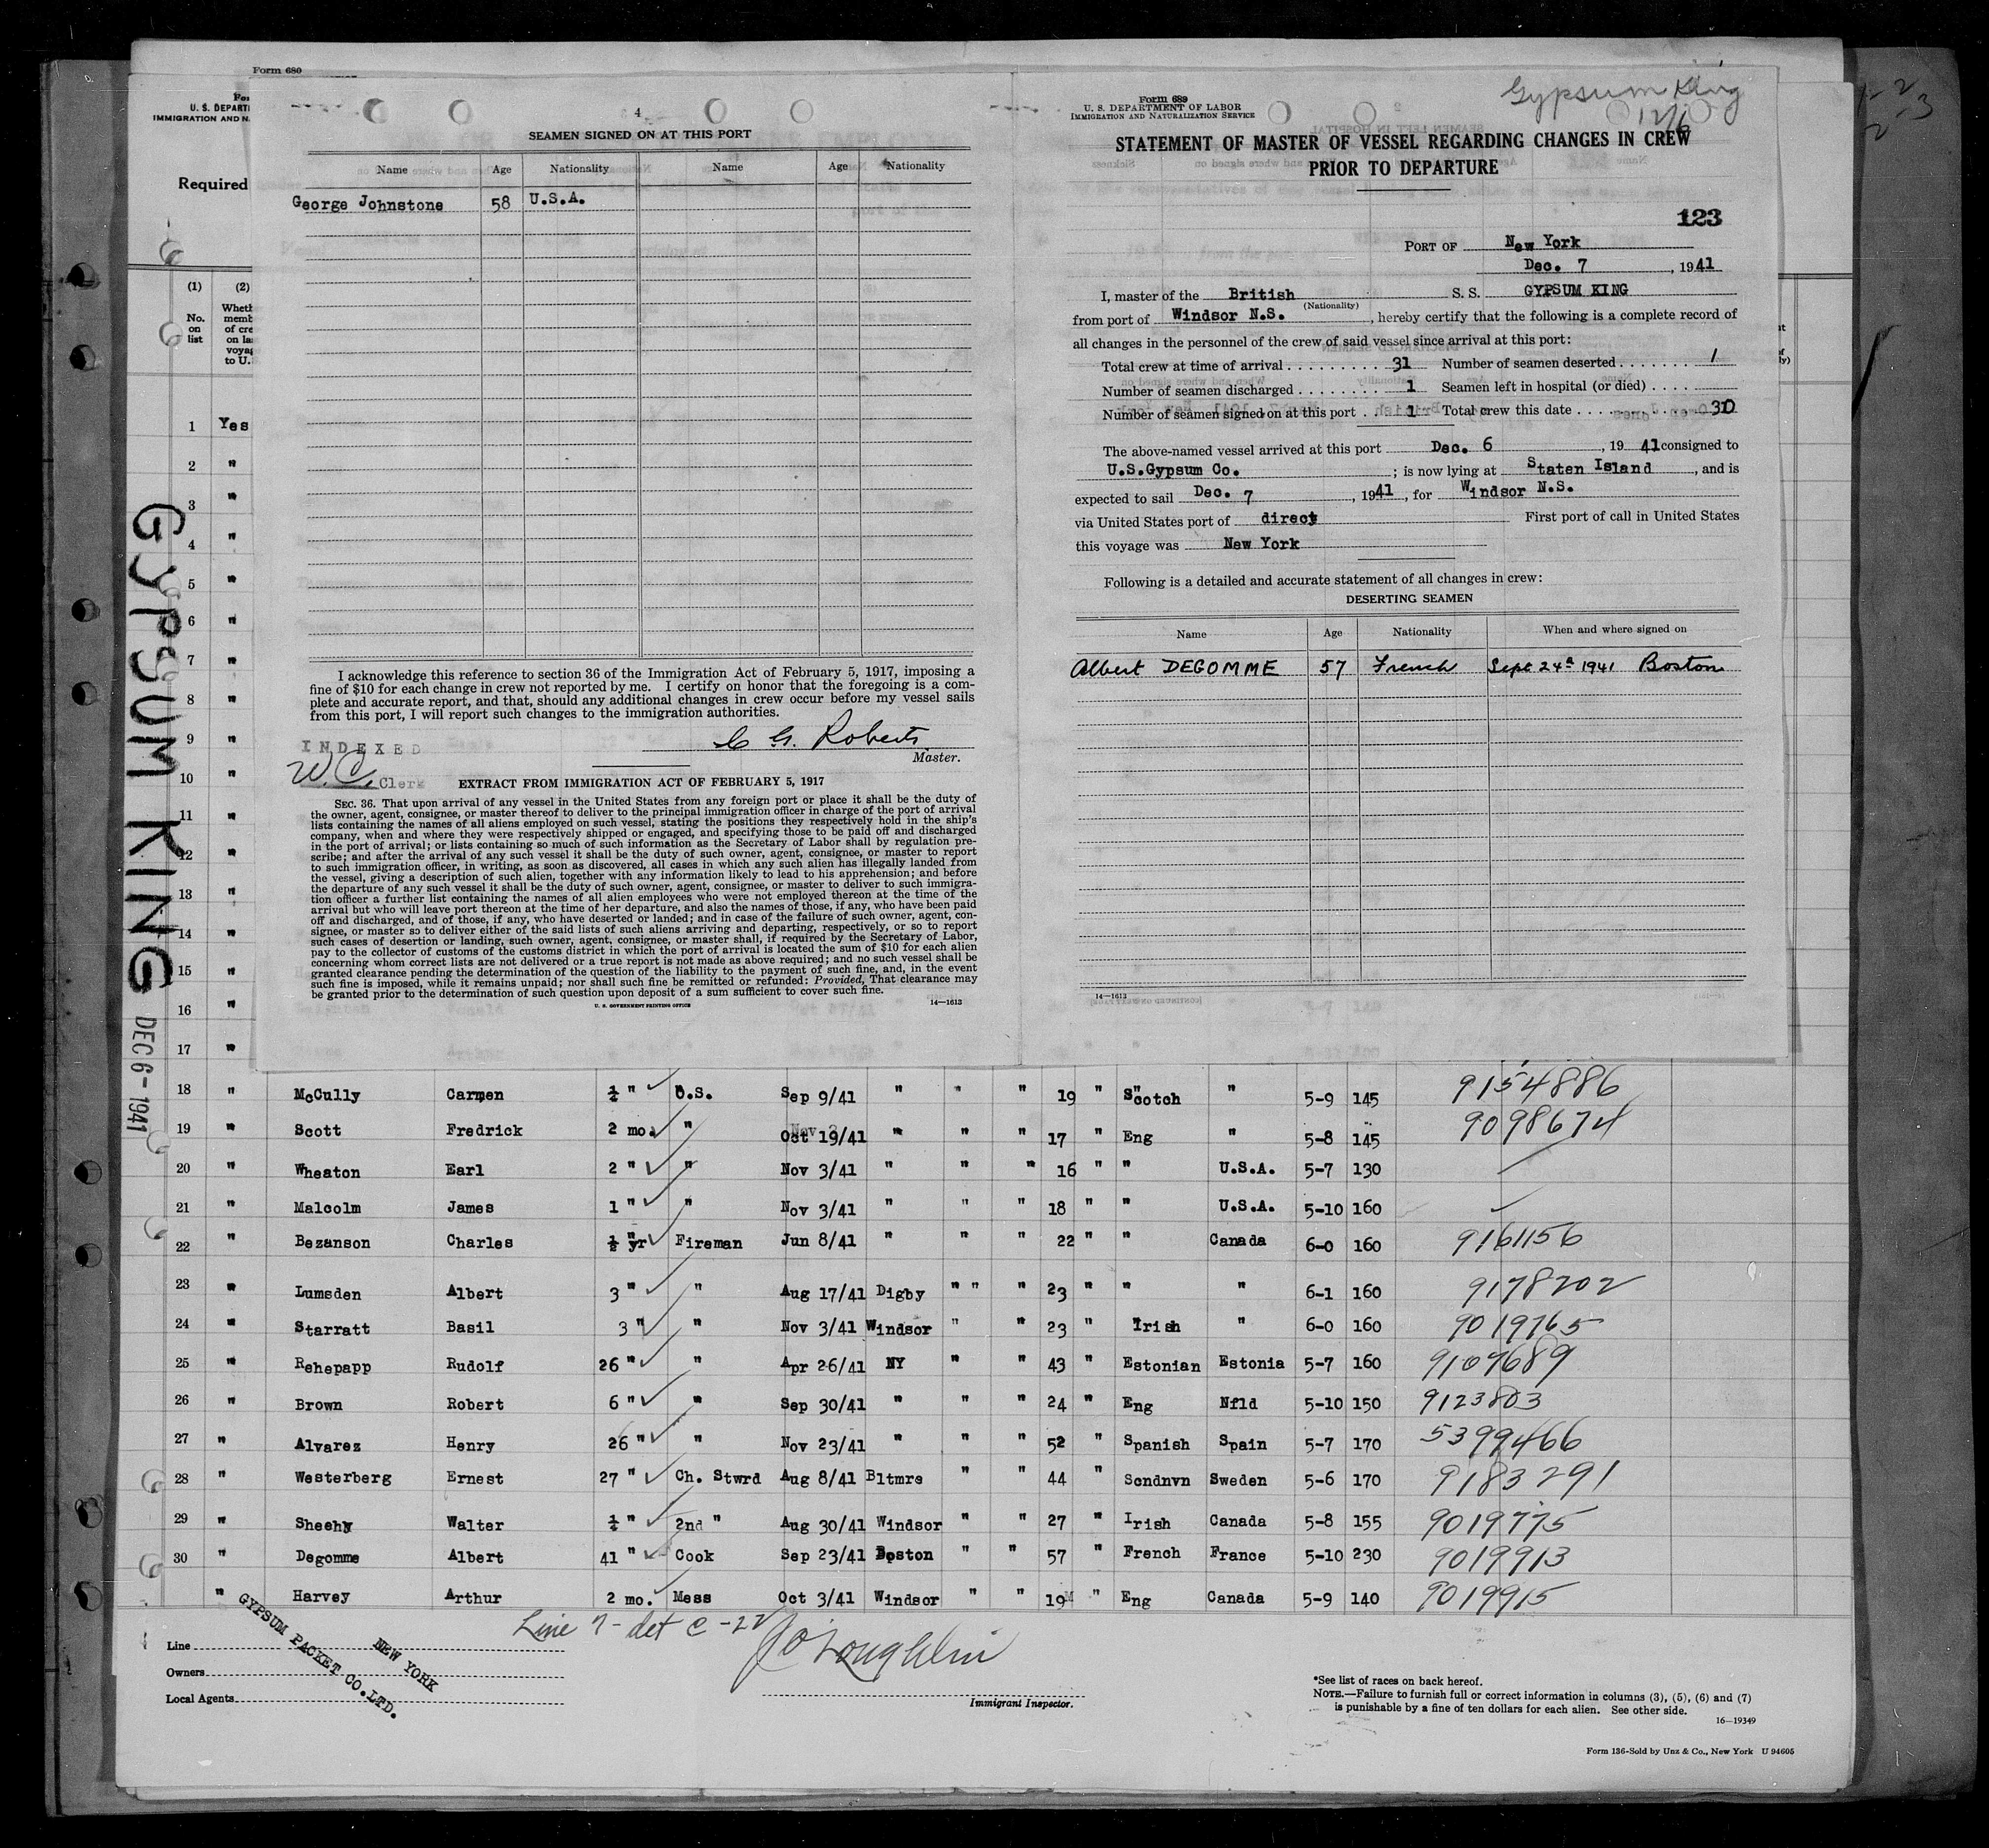 Form 680
U. S. DEPARTM
IMMIGRATION AND N
Required
(1) (2)
No. on list
Wheth
memb
of cre
on la
voyag
to U.
1 Yes
2 "
3 "
4 "
5 "
6 "
7 "
8 "
9 "
10 "
11 "
12 "
13 "
14 "
15 "
16 "
17 "
GYPSUM KING DEC 6-1941
4
SEAMEN SIGNED ON AT THIS PORT
Name Age Nationality Name Age Nationality
George Johnstone 58 U.S.A.
I acknowledge this reference to section 36 of the Immigration Act of February 5, 1917, imposing a
fine of $10 for each change in crew not reported by me. I certify on honor that the foregoing is a com-
plete and accurate report, and that, should any additional changes in crew occur before my vessel sails
from this port, I will report such changes to the immigration authorities.
C G. Roberts
Master.
INDEXED
W.C. Clerk
EXTRACT FROM IMMIGRATION ACT OF FEBRUARY 5, 1917
SEC. 36. That upon arrival of any vessel in the United States from any foreign port or place it shall be the duty of
the owner, agent, consignee, or master thereof to deliver to the principal immigration officer in charge of the port of arrival
lists containing the names of all aliens employed on such vessel, stating the positions they respectively hold in the ship's
company, when and where they were respectively shipped or engaged, and specifying those to be paid off and discharged
in the port of arrival; or lists containing so much of such information as the Secretary of Labor shall by regulation pre-
scribe; and after the arrival of any such vessel it shall be the duty of such owner, agent, consignee, or master to report
to such immigration officer, in writing, as soon as discovered, all cases in which any such alien has illegally landed from
the vessel, giving a description of such alien, together with any information likely to lead to his apprehension; and before
the departure of any such vessel it shall be the duty of such owner, agent, consignee, or master to deliver to such immigra-
tion officer a further list containing the names of all alien employees who were not employed thereon at the time of the
arrival but who will leave port thereon at the time of her departure, and also the names of those, if any, who have been paid
off and discharged, and of those, if any, who have deserted or landed; and in case of the failure of such owner, agent, con-
signee, or master so to deliver either of the said lists of such aliens arriving and departing, respectively, or so to report
such cases of desertion or landing, such owner, agent, consignee, or master shall, if required by the Secretary of Labor,
pay to the collector of customs of the customs district in which the port of arrival is located the sum of $10 for each alien
concerning whom correct lists are not delivered or a true report is not made as above required; and no such vessel shall be
granted clearance pending the determination of the question of the liability to the payment of such fine, and, in the event
such fine is imposed, while it remains unpaid; nor shall such fine be remitted or refunded: Provided, That clearance may
be granted prior to the determination of such question upon deposit of a sum sufficient to cover such fine.
U. S. GOVERNMENT PRINTING OFFICE 14—1613
Form 689
U. S. DEPARTMENT OF LABOR
IMMIGRATION AND NATURALIZATION SERVICE
Gypsum King
12/6
STATEMENT OF MASTER OF VESSEL REGARDING CHANGES IN CREW
PRIOR TO DEPARTURE
123
PORT OF New York
Dec. 7, 1941
I, master of the British S. S. GYPSUM KING
(Nationality)
from port of Windsor N.S., hereby certify that the following is a complete record of
all changes in the personnel of the crew of said vessel since arrival at this port:
Total crew at time of arrival 31 Number of seamen deserted 1
Number of seamen discharged 1 Seamen left in hospital (or died)
Number of seamen signed on at this port 1 Total crew this date 30
The above-named vessel arrived at this port Dec. 6, 1941 consigned to
U.S.Gypsum Co.; is now lying at Staten Island, and is
expected to sail Dec. 7, 1941, for Windsor N.S.
via United States port of direct First port of call in United States
this voyage was New York
Following is a detailed and accurate statement of all changes in crew:
DESERTING SEAMEN
Name Age Nationality When and where signed on
Albert DEGOMME 57 French Sept 24th 1941 Boston
14—1613
18 " McCully Carmen ½ " O.S. Sep 9/41 " " " 19 " Scotch " 5-9 145 9154886
19 " Scott Fredrick 2 mo. " Oct 19/41 " " " 17 " Eng " 5-8 145 9098674
20 " Wheaton Earl 2 " " Nov 3/41 " " " 16 " " U.S.A. 5-7 130
21 " Malcolm James 1 " " Nov 3/41 " " " 18 " " U.S.A. 5-10 160
22 " Bezanson Charles ½ yr Fireman Jun 8/41 " " " 22 " " Canada 6-0 160 9161156
23 " Lumsden Albert 3 " " Aug 17/41 Digby " " " 23 " " " 6-1 160 9178202
24 " Starratt Basil 3 " " Nov 3/41 Windsor " " 23 " Irish " 6-0 160 9019765
25 " Rehepapp Rudolf 26 " " Apr 26/41 NY " " 43 " Estonian Estonia 5-7 160 9109689
26 " Brown Robert 6 " " Sep 30/41 " " " 24 " Eng Nfld 5-10 150 9123803
27 " Alvarez Henry 26 " " Nov 23/41 " " " 52 " Spanish Spain 5-7 170 5399466
28 " Westerberg Ernest 27 " Ch. Stwrd Aug 8/41 Bltmre " " 44 " Scndnvn Sweden 5-6 170 9183291
29 " Sheehy Walter ½ " 2nd " Aug 30/41 Windsor " " 27 " Irish Canada 5-8 155 9019775
30 " Degomme Albert 41 " Cook Sep 23/41 Boston " " 57 " French France 5-10 230 9019913
" Harvey Arthur 2 mo. Mess Oct 3/41 Windsor " " 19 " Eng Canada 5-9 140 9019915
Line 7 - det C-22
J O'Loughlin
Immigrant Inspector.
Line
Owners
Local Agents
GYPSUM PACKET CO.LTD.
NEW YORK
*See list of races on back hereof.
NOTE.—Failure to furnish full or correct information in columns (3), (5), (6) and (7)
is punishable by a fine of ten dollars for each alien. See other side.
16—19349
Form 136-Sold by Unz & Co., New York U 94605